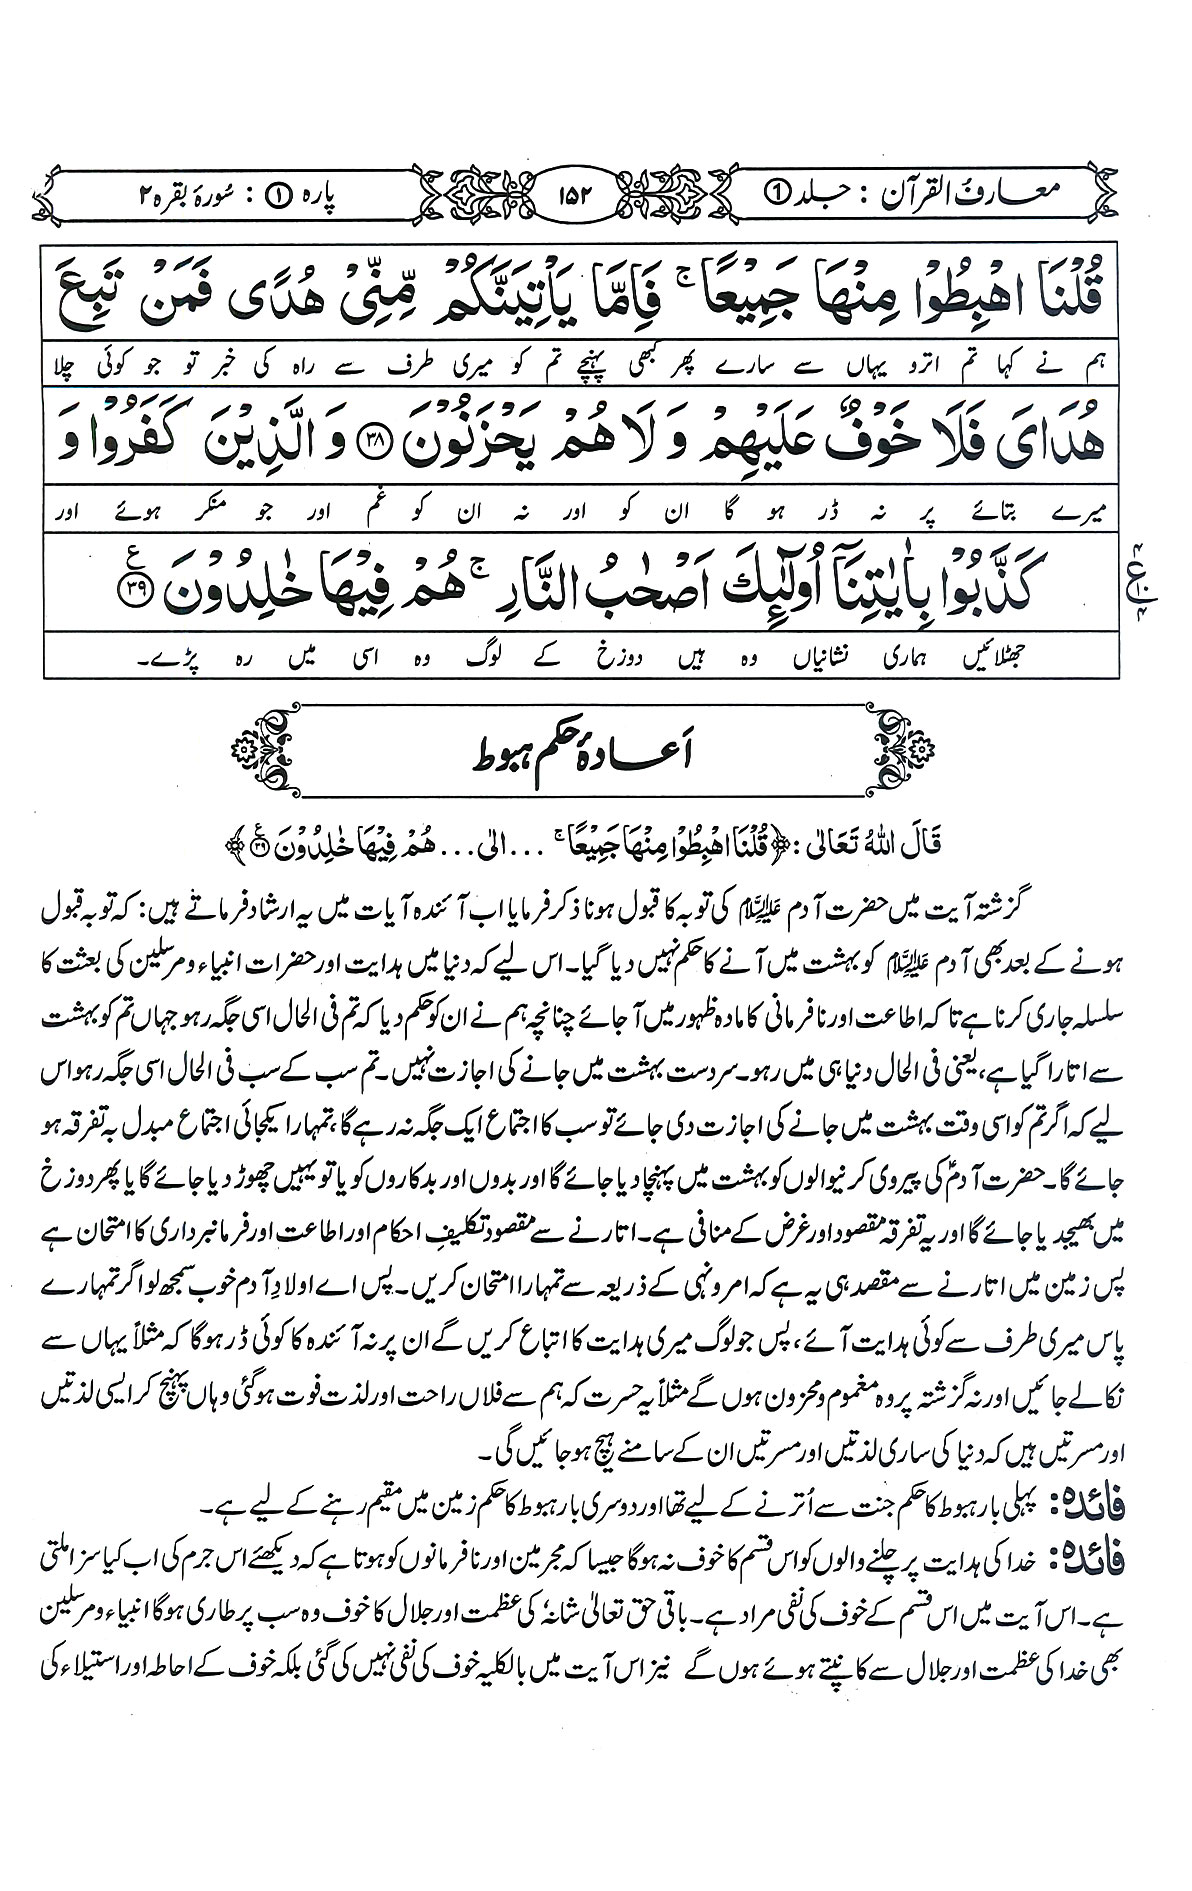 معارف القرآن : جلد ①
۱۵۲
پارہ ① : سُورۂ بقرہ ۲
قُلْنَا اهْبِطُوْا مِنْهَا جَمِيْعًا ۚ فَاِمَّا يَاْتِيَنَّكُمْ مِّنِّيْ هُدًى فَمَنْ تَبِعَ
ہم نے کہا تم اترو یہاں سے سارے پھر کبھی پہنچے تم کو میری طرف سے راہ کی خبر تو جو کوئی چلا
هُدَايَ فَلَا خَوْفٌ عَلَيْهِمْ وَلَا هُمْ يَحْزَنُوْنَ ﴿۳۸﴾ وَالَّذِيْنَ كَفَرُوْا وَ
میرے بتائے پر نہ ڈر ہو گا ان کو اور نہ ان کو غم اور جو منکر ہوئے اور
كَذَّبُوْا بِاٰيٰتِنَآ اُولٰٓئِكَ اَصْحٰبُ النَّارِ ۚ هُمْ فِيْهَا خٰلِدُوْنَ ﴿۳۹﴾ ع
جھٹلائیں ہماری نشانیاں وہ ہیں دوزخ کے لوگ وہ اسی میں رہ پڑے۔
اَعادۂ حکم ہبوط
قَالَ اللهُ تَعَالٰى : ﴿قُلْنَا اهْبِطُوْا مِنْهَا جَمِيْعًا ۚ ... الٰى ... هُمْ فِيْهَا خٰلِدُوْنَ ۳۹﴾
گزشتہ آیت میں حضرت آدم علیہ السلام کی توبہ کا قبول ہونا ذکر فرمایا اب آئندہ آیات میں یہ ارشاد فرماتے ہیں: کہ توبہ قبول
ہونے کے بعد بھی آدم علیہ السلام کو بہشت میں آنے کا حکم نہیں دیا گیا۔ اس لیے کہ دنیا میں ہدایت اور حضرات انبیاء و مرسلین کی بعثت کا
سلسلہ جاری کرنا ہے تاکہ اطاعت اور نافرمانی کا مادہ ظہور میں آجائے چنانچہ ہم نے ان کو حکم دیا کہ تم فی الحال اسی جگہ رہو جہاں تم کو بہشت
سے اتارا گیا ہے، یعنی فی الحال دنیا ہی میں رہو۔ سردست بہشت میں جانے کی اجازت نہیں۔ تم سب کے سب فی الحال اسی جگہ رہو اس
لیے کہ اگر تم کو اسی وقت بہشت میں جانے کی اجازت دی جائے تو سب کا اجتماع ایک جگہ نہ رہے گا، تمہارا یکجائی اجتماع مبدل بہ تفرقہ ہو
جائے گا۔ حضرت آدمؑ کی پیروی کرنیوالوں کو بہشت میں پہنچا دیا جائے گا اور بدوں اور بدکاروں کو یا تو یہیں چھوڑ دیا جائے گا یا پھر دوزخ
میں بھیجدیا جائے گا اور یہ تفرقہ مقصود اور غرض کے منافی ہے۔ اتارنے سے مقصود تکلیفِ احکام اور اطاعت اور فرمانبرداری کا امتحان ہے
پس زمین میں اتارنے سے مقصد ہی یہ ہے کہ امر و نہی کے ذریعہ سے تمہارا امتحان کریں۔ پس اے اولادِ آدم خوب سمجھ لو اگر تمہارے
پاس میری طرف سے کوئی ہدایت آئے، پس جو لوگ میری ہدایت کا اتباع کریں گے ان پر نہ آئندہ کا کوئی ڈر ہوگا کہ مثلاً یہاں سے
نکالے جائیں اور نہ گزشتہ پر وہ مغموم و محزون ہوں گے مثلاً یہ حسرت کہ ہم سے فلاں راحت اور لذت فوت ہوگئی وہاں پہنچ کر ایسی لذتیں
اور مسرتیں ہیں کہ دنیا کی ساری لذتیں اور مسرتیں ان کے سامنے ہیچ ہو جائیں گی۔
فائدہ: پہلی بار ہبوط کا حکم جنت سے اُترنے کے لیے تھا اور دوسری بار ہبوط کا حکم زمین میں مقیم رہنے کے لیے ہے۔
فائدہ: خدا کی ہدایت پر چلنے والوں کو اس قسم کا خوف نہ ہوگا جیسا کہ مجرمین اور نافرمانوں کو ہوتا ہے کہ دیکھئے اس جرم کی اب کیا سزا ملتی
ہے۔ اس آیت میں اس قسم کے خوف کی نفی مراد ہے۔ باقی حق تعالیٰ شانہٗ کی عظمت اور جلال کا خوف وہ سب پر طاری ہوگا انبیاء و مرسلین
بھی خدا کی عظمت اور جلال سے کانپتے ہوئے ہوں گے نیز اس آیت میں بالکلیہ خوف کی نفی نہیں کی گئی بلکہ خوف کے احاطہ اور استیلاء کی